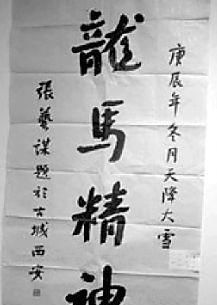 庚辰年冬月天降大雪
龍馬精神
張藝謀題於古城西安